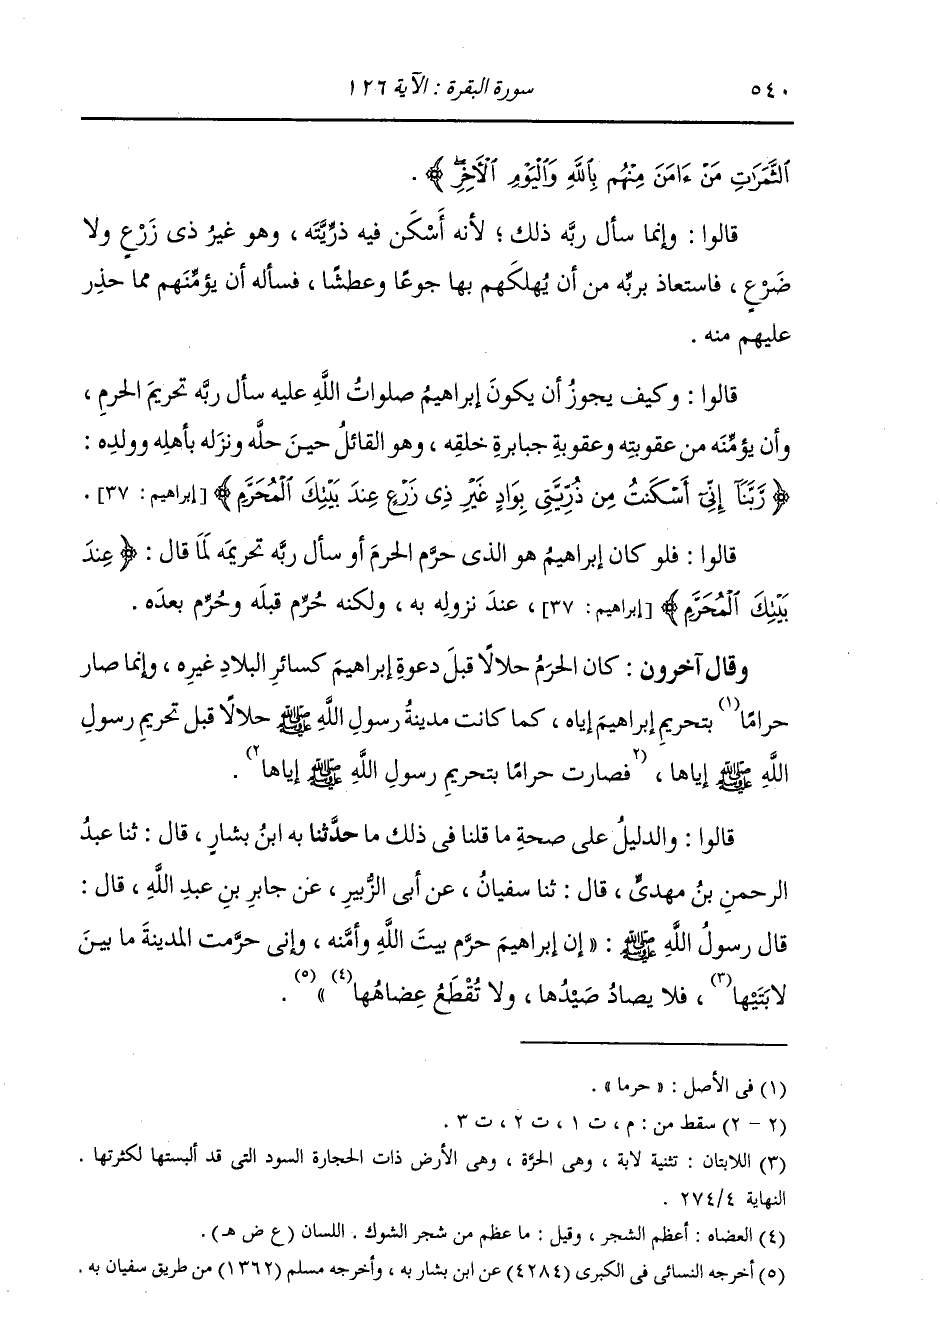 ٥٤٠ سورة البقرة : الآية ١٢٦
ٱلثَّمَرَٰتِ مَنْ ءَامَنَ مِنْهُم بِٱللَّهِ وَٱلْيَوْمِ ٱلْأَخِرِۖ ﴾ .
قالوا : وإنما سأل ربَّه ذلك ؛ لأنه أَسْكَن فيه ذرِّيَّتَه ، وهو غيرُ ذى زَرْعٍ ولا
ضَرْعٍ ، فاستعاذ بربِّه من أن يُهلكَهم بها جوعًا وعطشًا ، فسأله أن يؤمِّنَهم مما حذِر
عليهم منه .
قالوا : وكيف يجوزُ أن يكونَ إبراهيمُ صلواتُ اللَّهِ عليه سأل ربَّه تحريمَ الحرمِ ،
وأن يؤمِّنَه من عقوبتِه وعقوبةِ جبابرةِ خلقِه ، وهو القائلُ حينَ حلَّه ونزَله بأهلِه وولدِه :
﴿ رَّبَّنَآ إِنِّىٓ أَسْكَنتُ مِن ذُرِّيَّتِى بِوَادٍ غَيْرِ ذِى زَرْعٍ عِندَ بَيْتِكَ ٱلْمُحَرَّمِ ﴾ [إبراهيم : ٣٧] .
قالوا : فلو كان إبراهيمُ هو الذى حرَّم الحرمَ أو سأل ربَّه تحريمَه لَمَا قال : ﴿ عِندَ
بَيْتِكَ ٱلْمُحَرَّمِ ﴾ [إبراهيم : ٣٧] ، عندَ نزولِه به ، ولكنه حُرِّم قبلَه وحُرِّم بعدَه .
وقال آخرون : كان الحرَمُ حلالًا قبلَ دعوةِ إبراهيمَ كسائرِ البلادِ غيرِه ، وإنما صار
حرامًا(١) بتحريمِ إبراهيمَ إياه ، كما كانت مدينةُ رسولِ اللَّهِ ﷺ حلالًا قبل تحريمِ رسولِ
اللَّهِ ﷺ إياها ، (٢فصارت حرامًا بتحريمِ رسولِ اللَّهِ ﷺ إياها٢) .
قالوا : والدليلُ على صحةِ ما قلنا فى ذلك ما حدَّثنا به ابنُ بشارٍ ، قال : ثنا عبدُ
الرحمنِ بنُ مهدىٍّ ، قال : ثنا سفيانُ ، عن أبى الزُّبيرِ ، عن جابرِ بنِ عبدِ اللَّهِ ، قال :
قال رسولُ اللَّهِ ﷺ : « إن إبراهيمَ حرَّم بيتَ اللَّهِ وأمَّنه ، وإنى حرَّمت المدينةَ ما بينَ
لابَتَيْها(٣) ، فلا يصادُ صَيْدُها ، ولا تُقْطَعُ عِضاهُها(٤) »(٥) .
(١) فى الأصل : « حرما » .
(٢ - ٢) سقط من : م ، ت ١ ، ت ٢ ، ت ٣ .
(٣) اللابتان : تثنية لابة ، وهى الحرَّة ، وهى الأرض ذات الحجارة السود التى قد ألبستها لكثرتها .
النهاية ٢٧٤/٤ .
(٤) العضاه : أعظم الشجر ، وقيل : ما عظم من شجر الشوك . اللسان (ع ض هـ) .
(٥) أخرجه النسائى فى الكبرى (٤٢٨٤) عن ابن بشار به ، وأخرجه مسلم (١٣٦٢) من طريق سفيان به .